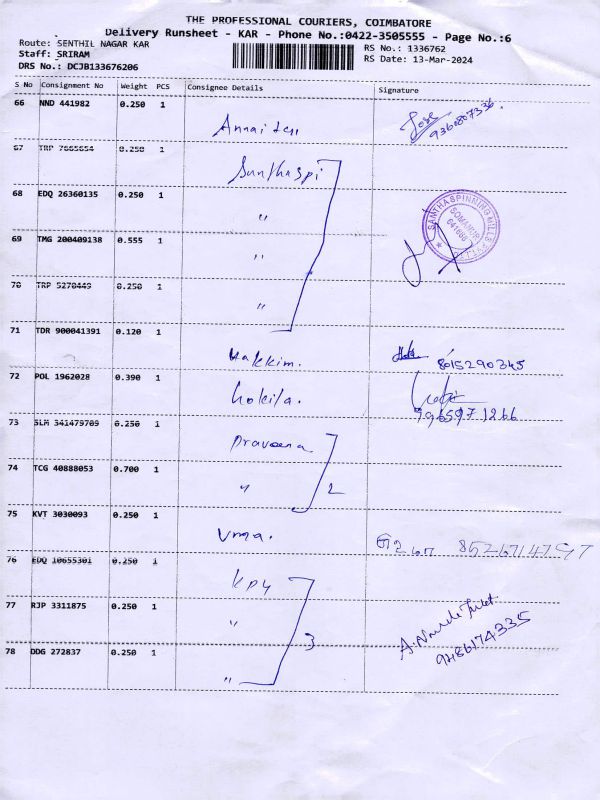 THE PROFESSIONAL COURIERS, COIMBATORE
Delivery Runsheet - KAR - Phone No.:0422-3505555 - Page No.:6
Route: SENTHIL NAGAR KAR
RS No.: 1336762
Staff: SRIRAM
RS Date: 13-Mar-2024
DRS No.: DCJB133676206
S No Consignment No Weight PCS Consignee Details Signature
66 NND 441982 0.250 1
9360807336
67 TRP 7665654 0.250 1
Santhaspi
68 EDQ 26360135 0.250 1
"
SANTHA SPINNING MILLS
SOMANUR
641668
69 TMG 200409138 0.555 1
"
70 TRP 5270449 0.250 1
"
71 TDR 900041391 0.120 1
Hakkim. 8015290345
72 POL 1962028 0.390 1
Kokila.
7965971266
73 SLM 341479709 0.250 1
Praveena
74 TCG 40888053 0.700 1
" 2
75 KVT 3030093 0.250 1
Uma. 8526714797
76 EDQ 10655301 0.250 1
KPY
77 RJP 3311875 0.250 1
" 3
9486174335
78 DDG 272837 0.250 1
"